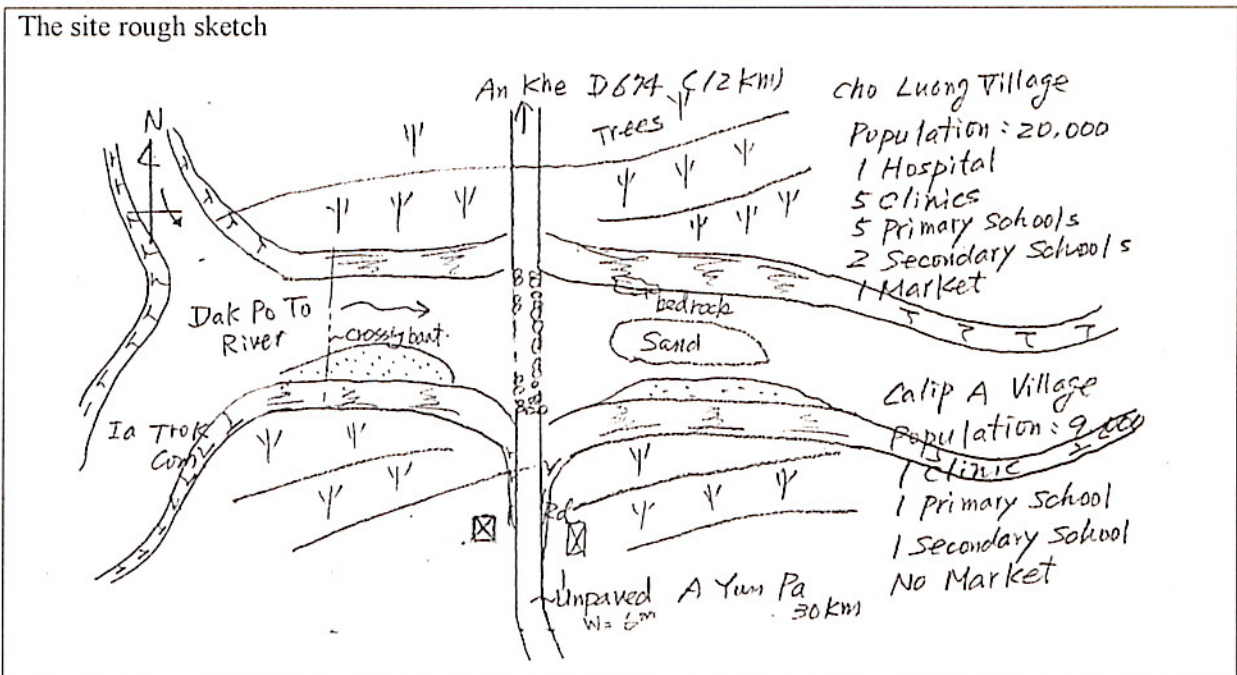 The site rough sketch
An Khe D674 (12 km)
N
Trees
Cho Luong Village
Population: 20,000
1 Hospital
5 Clinics
5 Primary Schools
2 Secondary Schools
1 Market
Dak Po To
River
crossig boat.
bedrock
Sand
Ia Trok
Com
Calip A Village
Population: 9,000
1 Clinic
1 Primary School
1 Secondary School
No Market
Rd
Unpaved
W= 6m
A Yun Pa
30 km